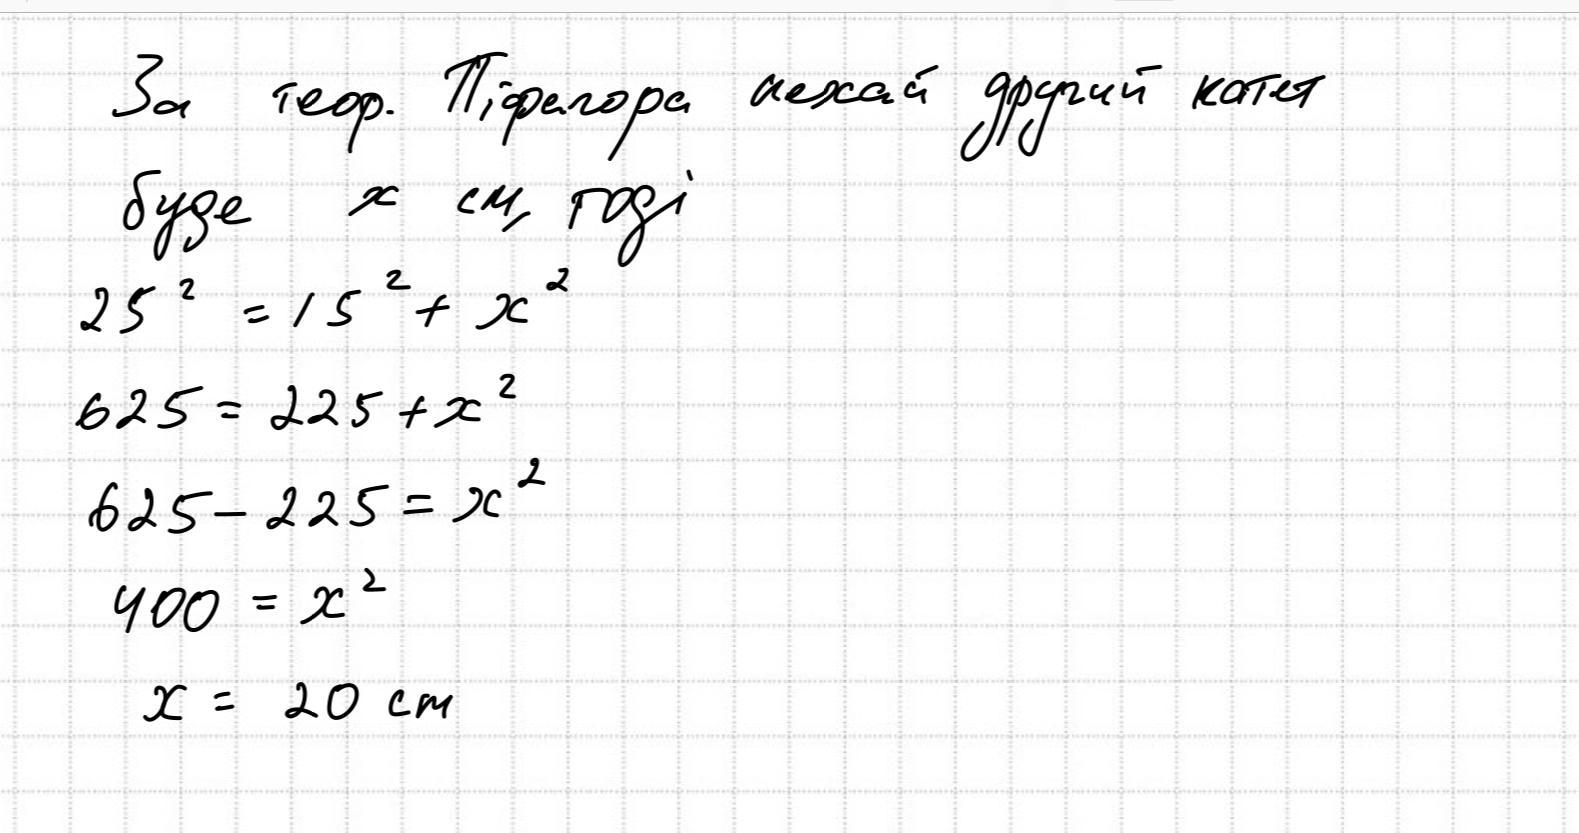 За теор. Піфагора нехай другий катет
буде x см, тоді
25² = 15² + x²
625 = 225 + x²
625 – 225 = x²
400 = x²
x = 20 см